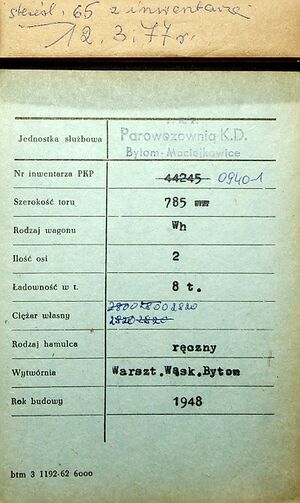 skreśl. 65 z inwentarza
12.3.77r.
Jednostka służbowa
Parowozownia K.D.
Bytom-Maciejkowice
Nr inwentarza PKP 44245 0940-1
Szerokość toru 785
Rodzaj wagonu Wh
Ilość osi 2
Ładowność w t. 8 t.
Ciężar własny 2800 2800 2820
2820 2820
Rodzaj hamulca ręczny
Wytwórnia Warszt.Wąsk.Bytom
Rok budowy 1948
btm 3 1192-62 6000